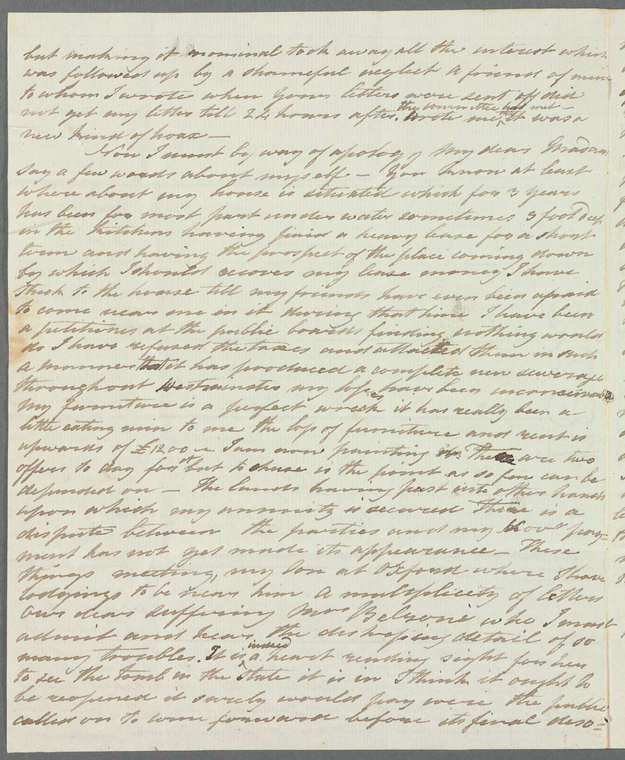 but making it nominal took away all the interest which
was followed up by a shameful neglect a friend of mine
to whom I wrote when your letters were sent off did
not get my letter till 24 hours after. wrote me the committee had met — It was a
new kind of hoax —
Now I must by way of apology my dear Madam
say a few words about myself — You know at least
where about my house is situated which for 3 years
has been for most part under water sometimes 3 foot deep
in the kitchen having paid a heavy lease for a short
term and having the prospect of the place coming down
by which I should recover my lease money I have
stuck to the house till my friends have even been afraid
to come near me in it during that time I have been
a petitioner at the public boards finding nothing would
do I have refused the taxes and attacked them in such
a manner that it has produced a complete new sewerage
throughout Westminster my losses have been inconceivable
my furniture is a perfect wreck it has really been a
little eating ruin to me the loss of furniture and rent is
upwards of £1200 — I am now painting it. There are two
offers to day for it but to chuse is the point as so few can be
depended on — The lands having past into other hands
upon which my annuity is secured There is a
dispute between the parties and my over pay-
ment has not yet made its appearance — These
things meeting, my Son at Oxford where I have
lodgings to be near him a multiplicity of letters
our dear suffering Mrs Belzoni who I must
admit and hear the distressing detail of so
many troubles. It is indeed a heart rending sight for her
to see the tomb in the State it is in I think it ought to
be reopened it surely would pay were the public
called on to come forward before its final deso=